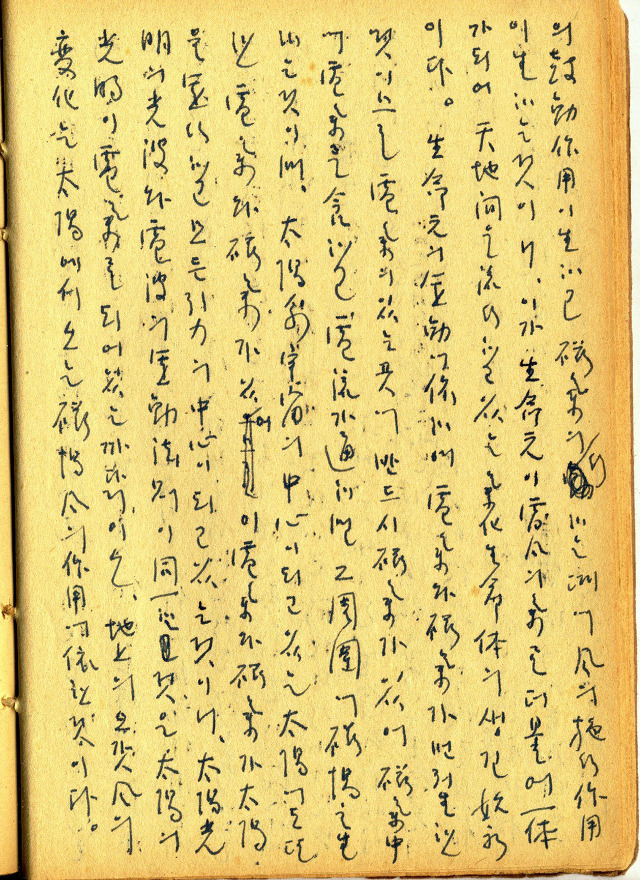 의 鼓動作用이 生하고 磁氣의 動하는 때에 風의 施行作用
이 生하는 것이니, 이가 生命元이 電風의 氣로 더불어 一体
가 되어 天地間을 流行하고 있는 氣化生命体의 생긴 始初
이다。 生命元의 運動에 依하여 電氣와 磁氣가 벌려 生한
것이므로 電氣의 있는 곳에 반드시 磁氣가 있어 磁氣中
에 電氣를 含하고 電流가 通하면 그 周圍에 磁場을 生
하는 것이며, 太陽系 宇宙의 中心이 되고 있는 太陽에도 또
한 電氣와 磁氣가 있어 이 電氣와 磁氣가 太陽
을 運行하고 모든 引力의 中心이 되고 있는 것이니, 太陽光
明의 光波와 電波의 運動法則이 同一한 것은 太陽의
光明이 電氣로 되어 있는 까닭이요, 地上의 온갖 風의
變化는 太陽에서 오는 磁場風의 作用에 依한 것이다。